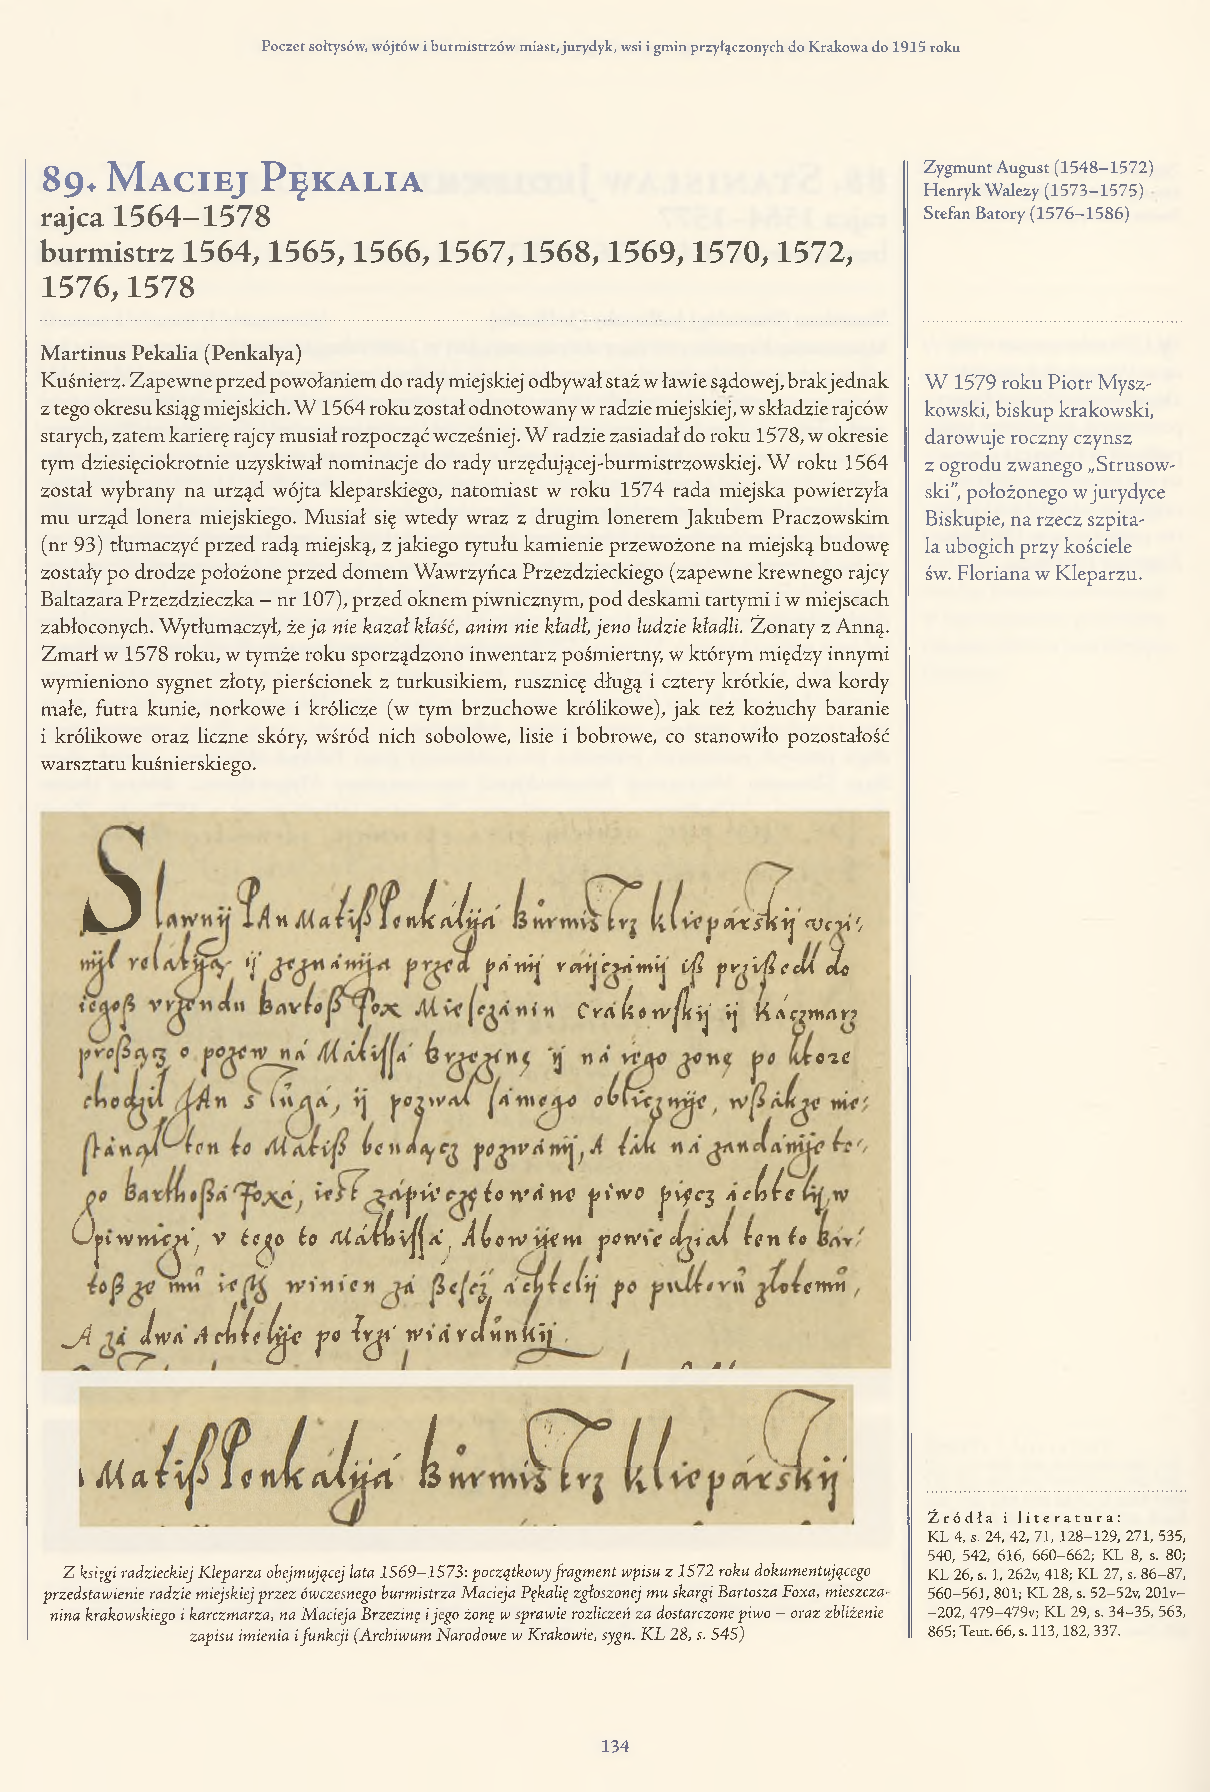 Poczet sołtysów, wójtów i burmistrzów miast, jurydyk, wsi i gmin przyłączonych do Krakowa do 1915 roku
89. Maciej Pękalia
rajca 1564–1578
burmistrz 1564, 1565, 1566, 1567, 1568, 1569, 1570, 1572,
1576, 1578
Martinus Pekalia (Penkalya)
Kuśnierz. Zapewne przed powołaniem do rady miejskiej odbywał staż w ławie sądowej, brak jednak
z tego okresu ksiąg miejskich. W 1564 roku został odnotowany w radzie miejskiej, w składzie rajców
starych, zatem karierę rajcy musiał rozpocząć wcześniej. W radzie zasiadał do roku 1578, w okresie
tym dziesięciokrotnie uzyskiwał nominacje do rady urzędującej-burmistrzowskiej. W roku 1564
został wybrany na urząd wójta kleparskiego, natomiast w roku 1574 rada miejska powierzyła
mu urząd lonera miejskiego. Musiał się wtedy wraz z drugim lonerem Jakubem Praczowskim
(nr 93) tłumaczyć przed radą miejską, z jakiego tytułu kamienie przewożone na miejską budowę
zostały po drodze położone przed domem Wawrzyńca Przezdzieckiego (zapewne krewnego rajcy
Baltazara Przezdzieczka – nr 107), przed oknem piwnicznym, pod deskami tartymi i w miejscach
zabłoconych. Wytłumaczył, że ja nie kazał kłaść, anim nie kładł, jeno ludzie kładli. Żonaty z Anną.
Zmarł w 1578 roku, w tymże roku sporządzono inwentarz pośmiertny, w którym między innymi
wymieniono sygnet złoty, pierścionek z turkusikiem, rusznicę długą i cztery krótkie, dwa kordy
małe, futra kunie, norkowe i królicze (w tym brzuchowe królikowe), jak też kożuchy baranie
i królikowe oraz liczne skóry, wśród nich sobolowe, lisie i bobrowe, co stanowiło pozostałość
warsztatu kuśnierskiego.
Slawnij PAn Matiß Penkálija búrmistrz kliepárskij vczi-
nijl relátiją ij zeznánija przed pánij raijczámij iß przißedl do
iegoß vrzendu Bartoß Fox Miesczánin Crákowskij ij Káczmarz
proßącz o pozew ná Mátissá brzezinę ij ná iego zonę po ktore
chodzil JAn slúgá, ij pozwal sámego oblicznije, wßákze nie-
stánąl ten to Matiß bendącz pozwánij, A ták ná zandánije te-
go Barthoßá Foxá, iest zápieczętowáne piwo pięcz áchtelij w
piwniczi, v tego to Máthissá, Abowijem powiedzial ten to Bár-
toß ze mú iestz winien zá ßescz áchtelij po pultorú zlotemú,
A zá dwá Achtelije po trzi wiárdúnkij.
Matiß Penkálija búrmistrz kliepárskij
Z księgi radzieckiej Kleparza obejmującej lata 1569–1573: początkowy fragment wpisu z 1572 roku dokumentującego
przedstawienie radzie miejskiej przez ówczesnego burmistrza Macieja Pękalię zgłoszonej mu skargi Bartosza Foxa, mieszcza-
nina krakowskiego i karczmarza, na Macieja Brzezinę i jego żonę w sprawie rozliczeń za dostarczone piwo – oraz zbliżenie
zapisu imienia i funkcji (Archiwum Narodowe w Krakowie, sygn. KL 28, s. 545)
Zygmunt August (1548–1572)
Henryk Walezy (1573–1575)
Stefan Batory (1576–1586)
W 1579 roku Piotr Mysz-
kowski, biskup krakowski,
darowuje roczny czynsz
z ogrodu zwanego „Strusow-
ski”, położonego w jurydyce
Biskupie, na rzecz szpita-
la ubogich przy kościele
św. Floriana w Kleparzu.
Źródła i literatura:
KL 4, s. 24, 42, 71, 128–129, 271, 535,
540, 542, 616, 660–662; KL 8, s. 80;
KL 26, s. 1, 262v, 418; KL 27, s. 86–87,
560–561, 801; KL 28, s. 52–52v, 201v–
–202, 479–479v; KL 29, s. 34–35, 563,
865; Teut. 66, s. 113, 182, 337.
134